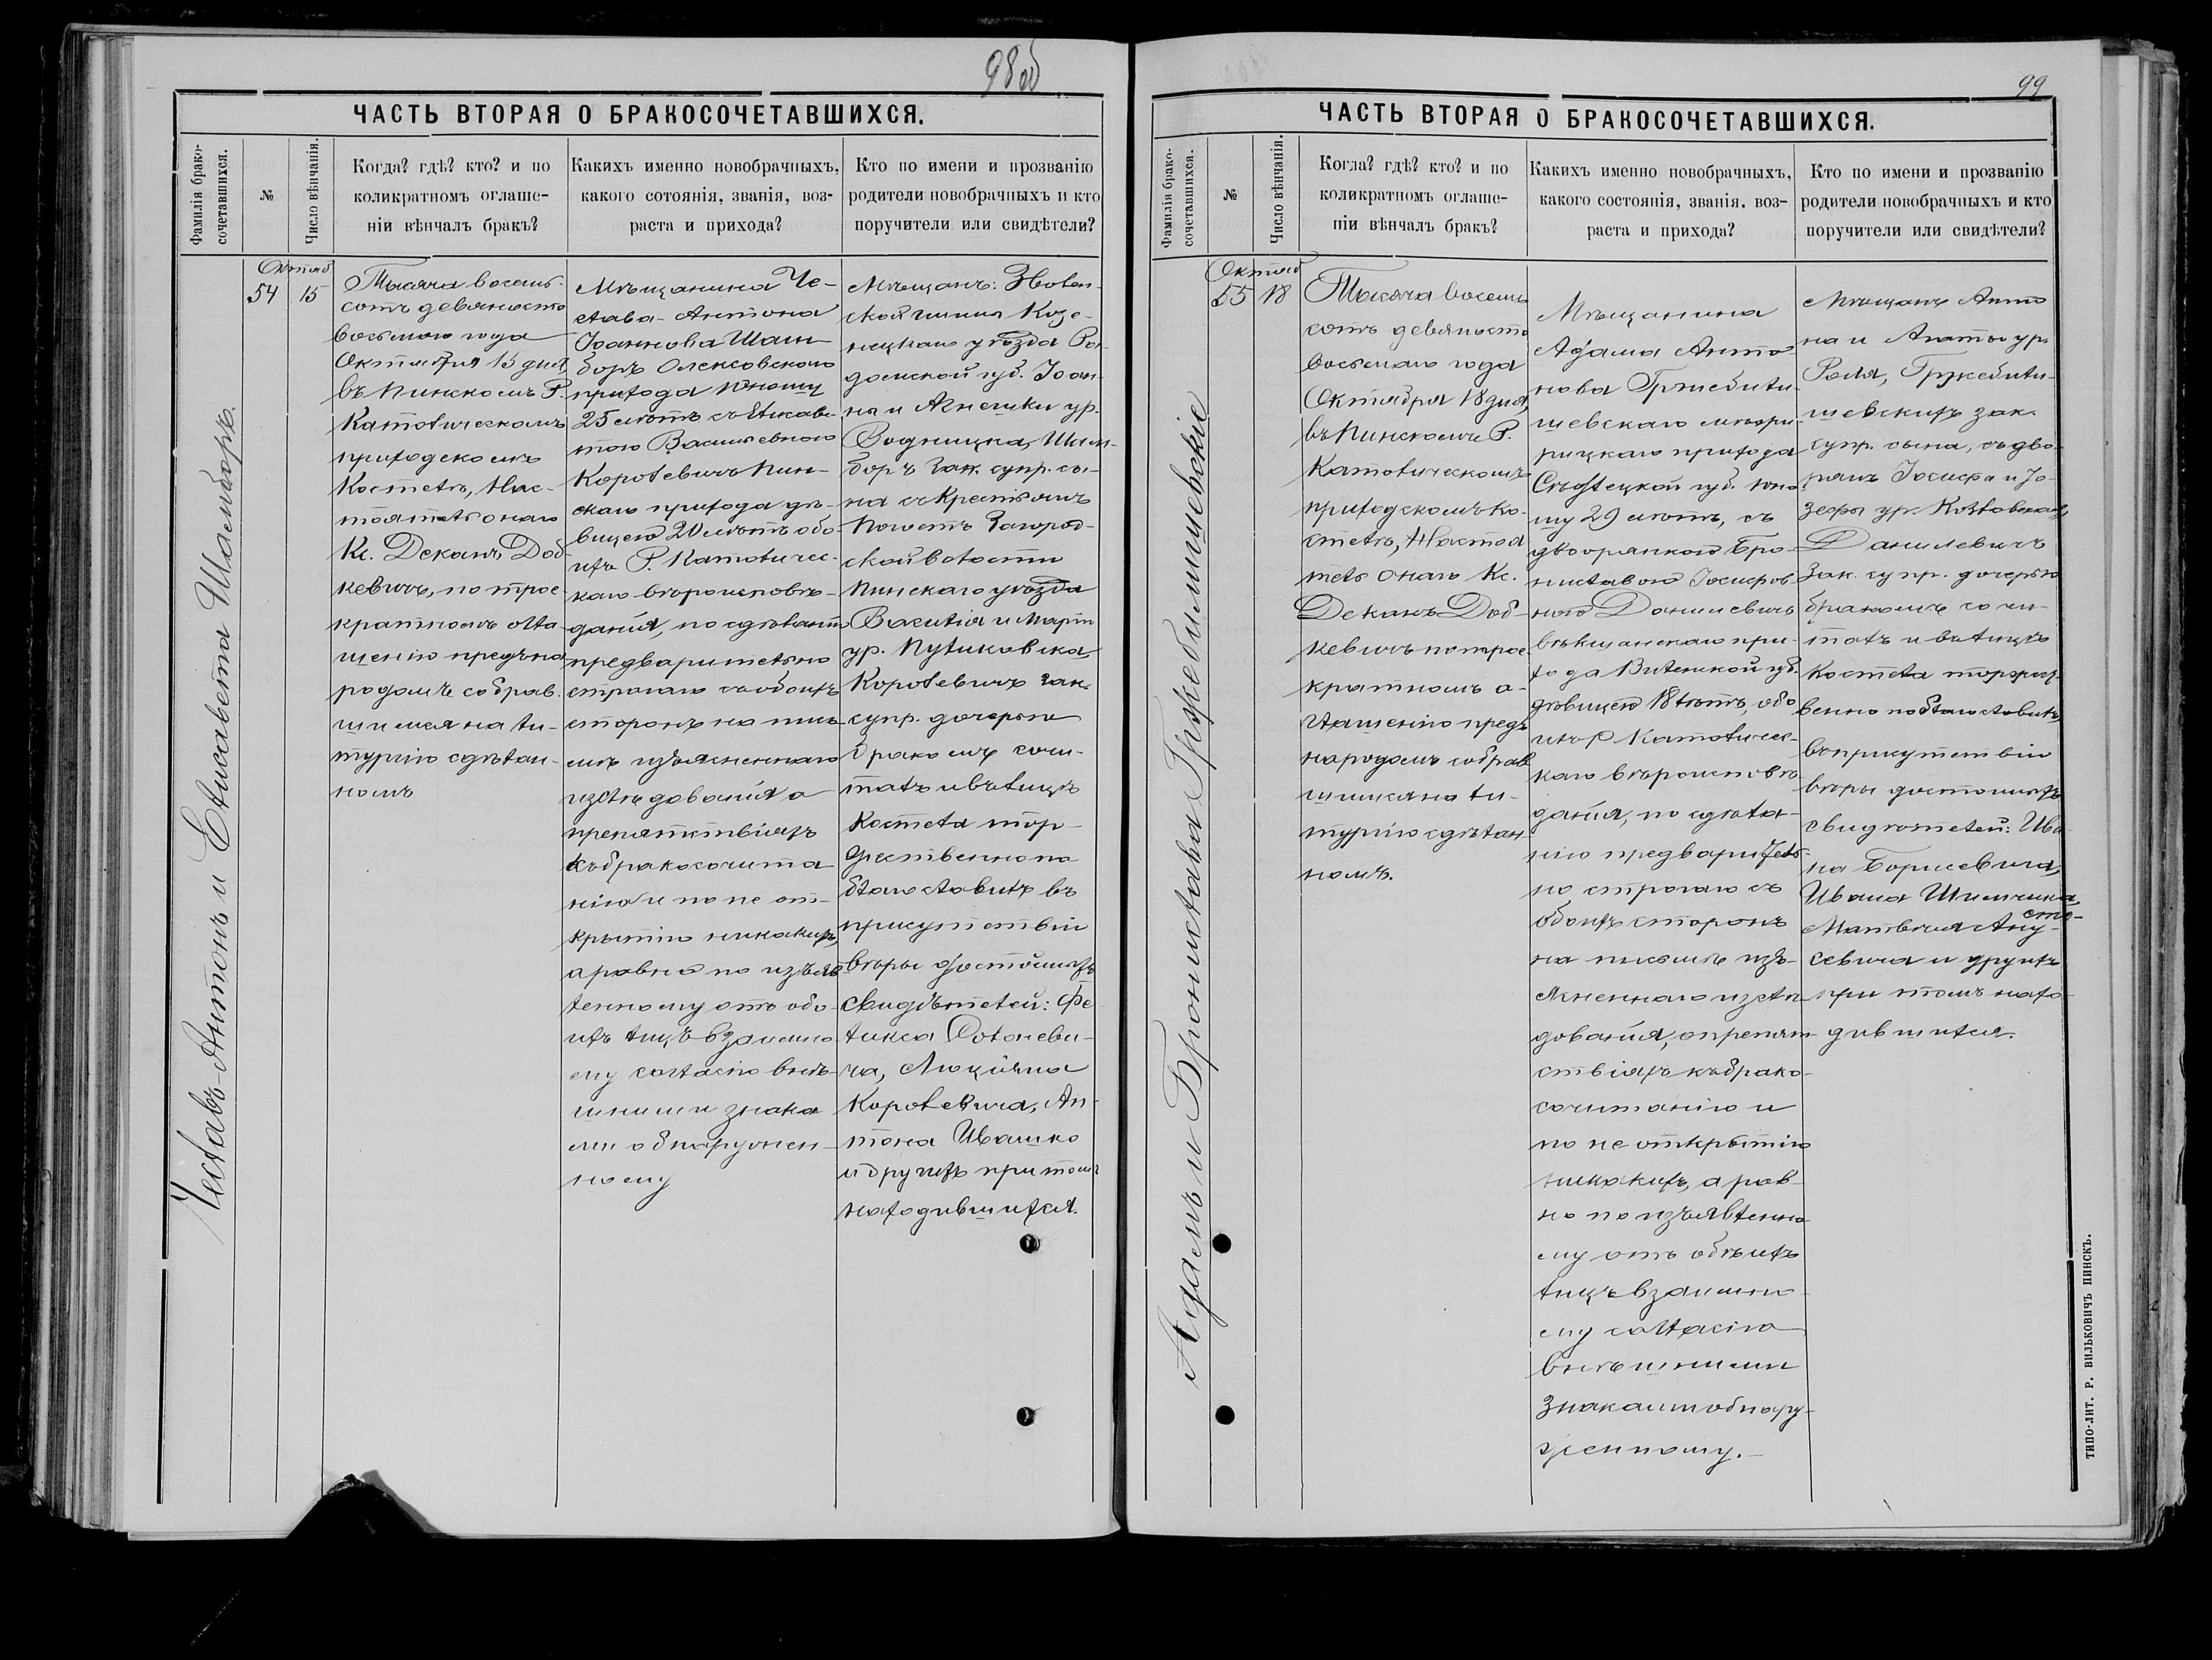 98об
ЧАСТЬ ВТОРАЯ О БРАКОСОЧЕТАВШИХСЯ.
Фамилія брако-
сочетавшихся.
№
Число вѣнчанія.
Когда? гдѣ? кто? и по
коликратномъ оглаше-
ніи вѣнчалъ бракъ?
Какихъ именно новобрачныхъ,
какого сотоянія, званія, воз-
раста и прихода?
Кто по имени и прозванію
родители новобрачныхъ и кто
поручители или свидѣтели?
Чеславъ-Антонъ и Елисавета Шамборъ.
Октяб
54
15
Тысяча восемь-
сотъ девяносто
восьмого года
Октября 15 дня,
въ Пинскомъ Р.
Католическомъ
приходскомъ
Костелѣ, Нас-
тоятель онаго
Кс. Деканъ Доб-
кевичъ, по трое-
кратномъ огла-
шенію предъ на-
родомъ собрав-
шимся на ли-
тургію сдѣлан-
номъ
Мѣщанина Че-
слава-Антона
Іоаннова Шам-
боръ Олексовскаго
прихода юношу
25 лѣтъ съ Елисаве-
тою Васильевною
Королевичъ Пин-
скаго прихода дѣ-
вицею 20 лѣтъ обо-
ихъ Р. Католичес-
каго вѣроисповѣ-
данія, по сдѣланіи
предварительно
строгаго съ обоихъ
сторонъ на пись-
мѣ изъясненнаго
изслѣдованія о
препятствіяхъ
къ бракосочита-
нію и по не от-
крытію никакихъ,
а равно по изъяв-
ленному отъ обо-
ихъ лицъ взаимно-
му согласію внѣ-
шними знака
ми обнаружен-
ному
Мѣщанъ: Зволен-
ской гмины Козе-
ницкаго уѣзда Ра-
домской губ. Іоан-
на и Агнешки ур.
Водницка, Шам-
боръ зак. супр. сы-
на съ Крестьянъ
Погостъ Загород-
ской волости
Пинскаго уѣзда
Василія и Марти
ур. Путиковска,
Королевичъ зак.
супр. дочерью
бракомъ сочи-
талъ и въ лицѣ
Костела тор-
жественно по
благословилъ въ
присутствіи
вѣры достойныхъ
свидѣтелей: Фе-
ликса
ча, Люціяна
Королевича, Ан-
тона Ивашко
и другихъ при томъ
находившихся.
99
ЧАСТЬ ВТОРАЯ О БРАКОСОЧЕТАВШИХСЯ.
Фамилія брако-
сочетавшихся.
№
Число вѣнчанія.
Когда? гдѣ? кто? и по
коликратномъ оглаше-
ніи вѣнчалъ бракъ?
Какихъ именно новобрачныхъ,
какого состоянія, званія, воз-
раста и прихода?
Кто по имени и прозванію
родители новобрачныхъ и кто
поручители или свидѣтели?
Адамъ и Брониславы Гржебилишевскіе
Октяб
55
18
Тысяча восемь
сотъ девяносто
восьмаго года
Октября 18 дня,
въ Пинскомъ Р.
Католическомъ
приходскомъ Ко-
стелѣ, Настоя
тель онаго Кс.
Деканъ Доб-
кевичъ по трое-
кратномъ о-
глашенію предъ
народомъ собрав
шимся на ли-
тургію сдѣлан-
номъ.
Мѣщанина
Адама Анто-
нова Гржебили-
шевскаго
прихода
Сѣдлецкой губ. юно
шу 29 лѣтъ, съ
дворянкою Бро-
ниславою Іосифов-
ною Данилевичъ
при-
хода Виленской губ.
дѣвицею 18 лѣтъ, обо
ихъ Р. Католичес-
каго вѣроисповѣ-
данія, по сдѣла-
нію предваритель-
но строгаго съ
обоихъ сторонъ
на письмѣ изъ-
ясненнаго изслѣ-
дованія, о препят-
ствіяхъ къ брако-
сочитанію и
по не открытію
никакихъ, а рав-
но по изъявленно-
му отъ обѣихъ
лицъ взаимно-
му согласію
внѣшними
знаками обнару-
женному.
Мѣщанъ Анто
на и Агаты ур.
Роля, Гржебили-
шевскихъ зак.
супр. сына, съ дво-
рянъ Іосифа и Іо-
зефы ур. Козловская,
Данилевичъ
Зак. супр. дочерью
бракомъ сочи-
талъ и въ лицѣ
Костела торжест-
венно поблагословилъ,
въ присутствіи
вѣры достойныхъ
свидѣтелей: Ива-
на Борисевича,
Ивана Шимчика
Матвѣя Ану-
севича и другихъ
при томъ нахо-
дившихся.
ТИПО-ЛИТ. Р. ВИЛЬКОВИЧЪ ПИНСКЪ.